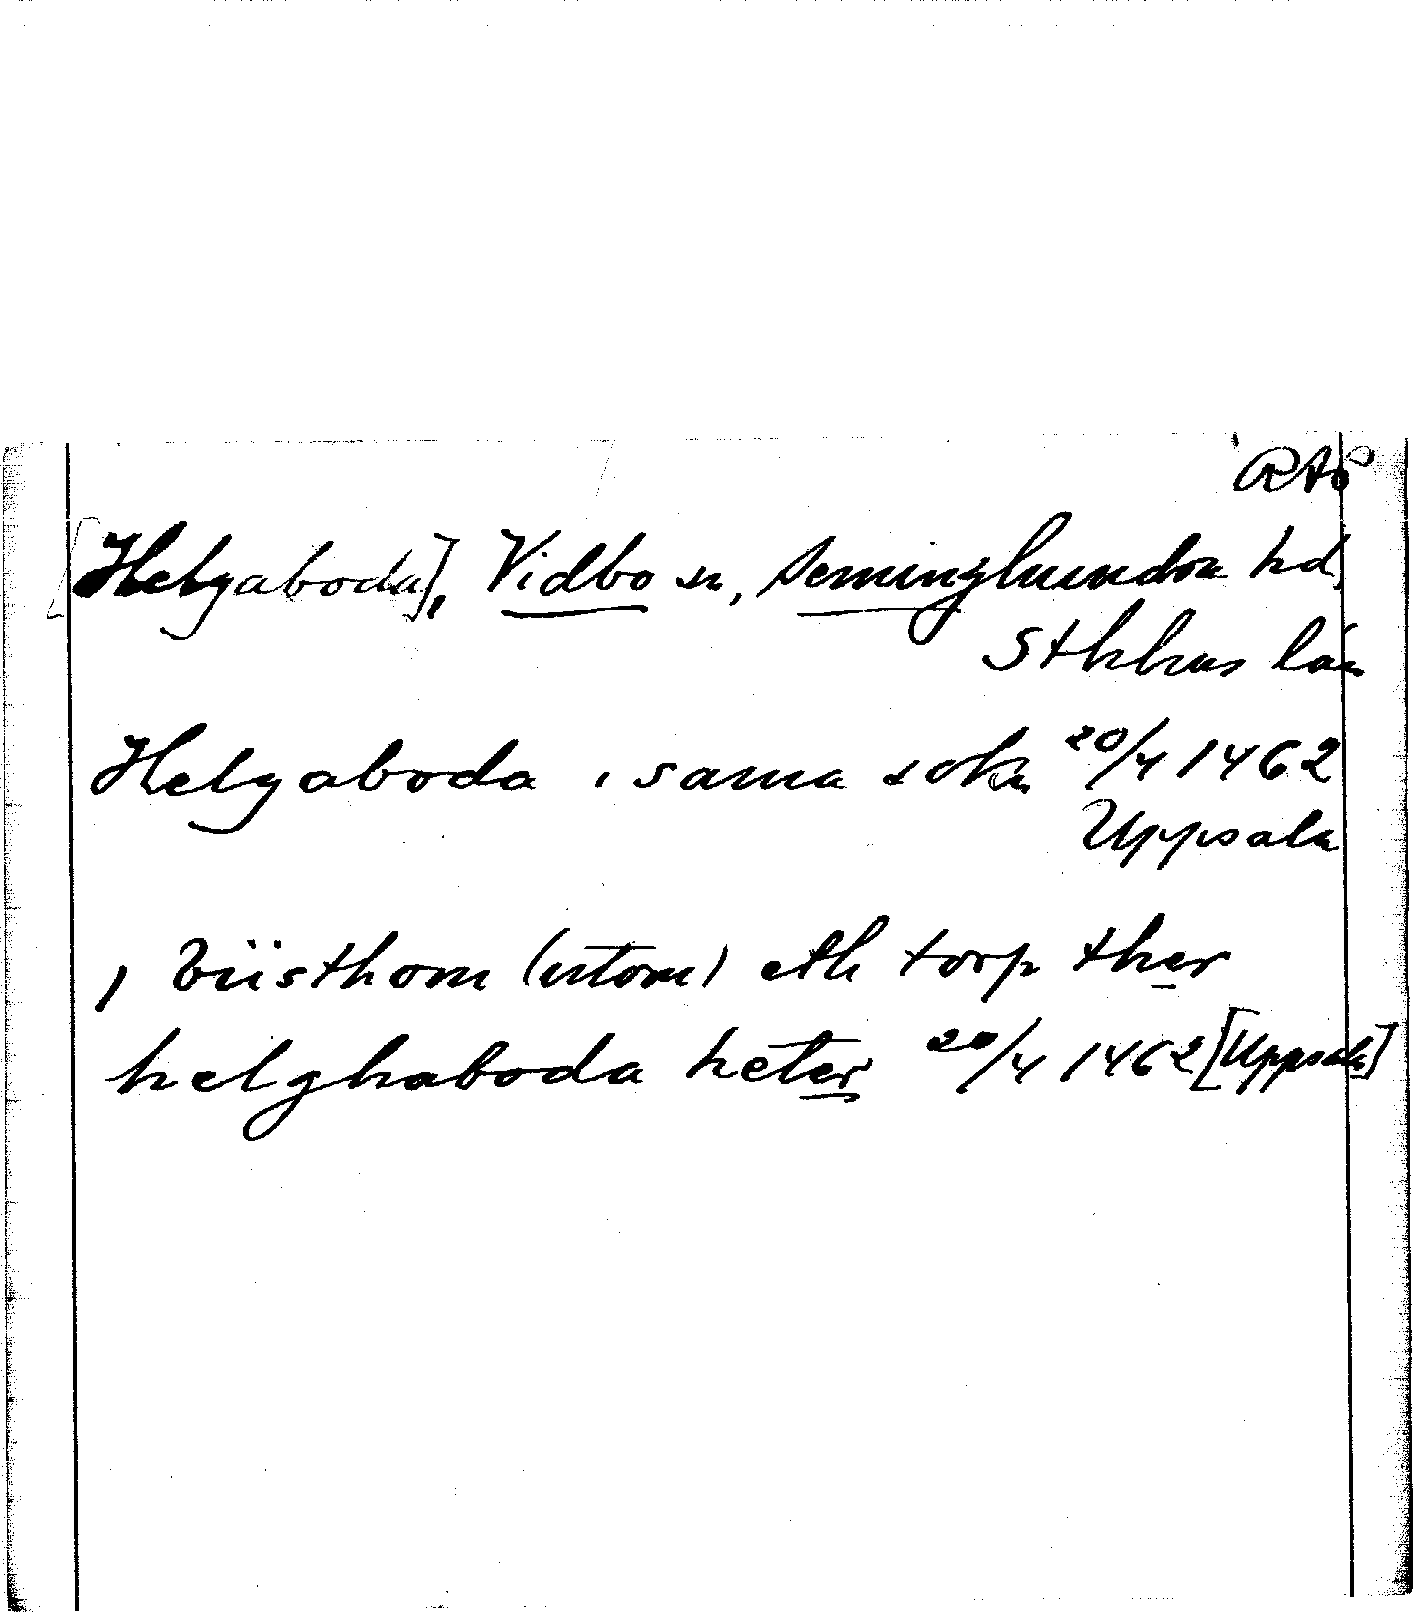 RAÖ
[Helgaboda], Vidbo sn, Seminghundra hd,
Sthlms län
Helgaboda i sama sokn 20/4 1462
Uppsala
i Viisthom (utom) eth torp ther
helghaboda heter 20/4 1462 [Uppsala]